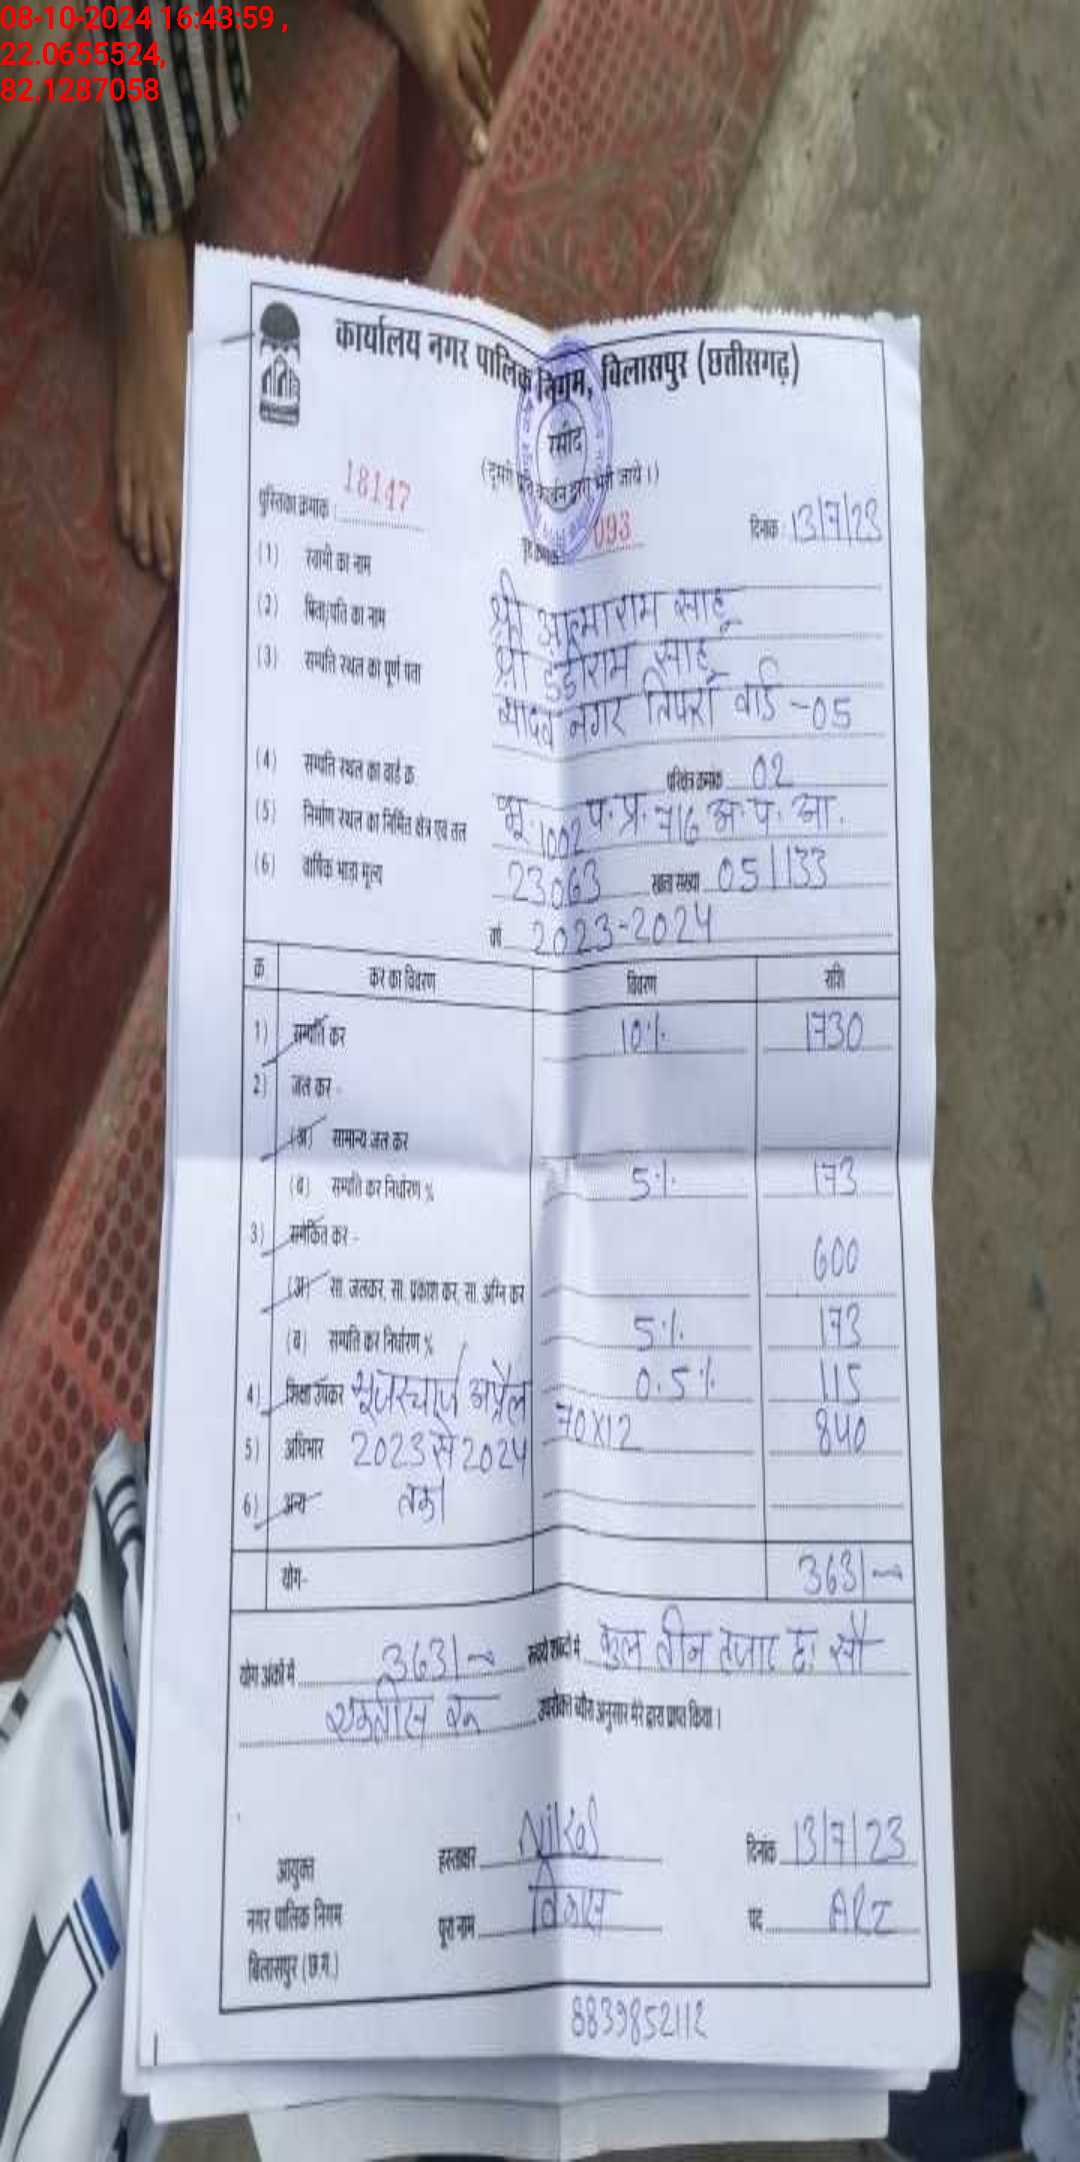 08-10-2024 16:43:59 ,
22.0655524,
82.1287058
कार्यालय नगर पालिक निगम, बिलासपुर (छत्तीसगढ़)
रसीद
(दूसरी प्रति कार्बन द्वारा भरी जाये।)
पुस्तिका क्रमांक : 18147 093 दिनांक 13/7/23
(1) स्वामी का नाम श्री आत्माराम साहू
(2) पिता/पति का नाम श्री साहू
(3) सम्पत्ति स्थल का पूर्ण पता यादव नगर तिफरा वार्ड -05
(4) सम्पत्ति स्थल का वार्ड क्र. परिक्षेत्र क्रमांक 02
(5) निर्माण स्थल का निर्मित क्षेत्र एवं तल भू. 1002 प. प्र. 716 अ. प. आ.
(6) वार्षिक भाड़ा मूल्य 23063 खाता संख्या 051133
वर्ष 2023-2024
क्र कर का विवरण विवरण राशि
1) सम्पत्ति कर 10% 1730
2) जल कर -
(अ) सामान्य जल कर
(ब) सम्पत्ति कर निर्धारण % 5% 173
3) समेकित कर - 600
(अ) सा. जलकर, सा. प्रकाश कर, सा. अग्नि कर
(ब) सम्पत्ति कर निर्धारण % 5% 173
4) शिक्षा उपकर यूजरचार्ज अप्रैल 0.5% 115
5) अधिभार 2023 से 2024 70X12 840
6) अन्य तक
योग- 3631
योग अंकों में 3631 रूपये शब्दों में कुल तीन हजार छः सौ
एकतीस रू उपरोक्त ब्यौरा अनुसार मेरे द्वारा प्राप्त किया।
आयुक्त हस्ताक्षर दिनांक 13/7/23
नगर पालिक निगम पूरा नाम विकास पद ARI
बिलासपुर (छ.ग.)
8839852112